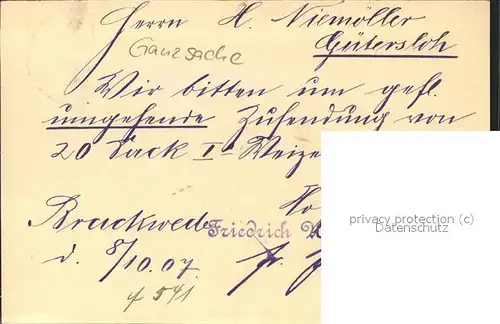 Herrn H. Niemöller
Gütersloh
Ganzsache
Wir bitten um gefl.
umgehende Zusendung von
20 Sack Iᵃ
privacy protection (c)
Datenschutz
Brackwede
Friedrich
d. 8/10.07.
541